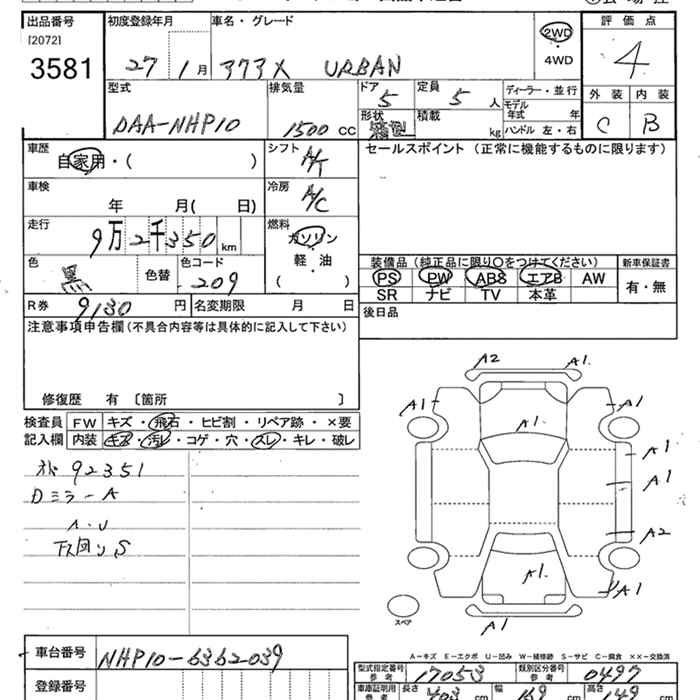 出品番号 初度登録年月 車名・グレード 評価点
[2072]
3581 27 1月 アクア X URBAN 2WD・4WD 4
型式 排気量 ドア 定員 ディーラー・並行 外装 内装
DAA-NHP10 1500cc 5 5人 モデル年式 年 C B
形状 積載 kg ハンドル 左・右
車歴 シフト セールスポイント (正常に機能するものに限ります)
自家用・( ) A/T
車検 冷房
年 月( 日) A/C
走行 燃料
9万2千350km ガソリン
軽・油
( )
色 色替 色コード 装備品 (純正品に限り○をつけてください) 新車保証書
黒 209 PS PW ABS エアB AW 有・無
SR ナビ TV 本革
R券 9130円 名変期限 月 日 後日品
注意事項申告欄 (不具合内容等は具体的に記入して下さい)
修復歴 有 〔箇所 〕
検査員 FW キズ・飛石・ヒビ割・リペア跡・×要
記入欄 内装 キズ・汚レ・コゲ・穴・スレ・キレ・破レ
92351
Dミラ-A
A・U
下回り、S
A2 A1
A1 A1
A1
A1
A1
A2
A1 A1
A1
スペア
A-キズ E-エクボ U-凹み W-補修跡 S-サビ C-腐食 ××-交換済
車台番号 NHP10-6362039
型式指定番号 参考 17053 類別区分番号 参考 0497
登録番号 車庫証明用 参考 長さ 403cm 幅 169cm 高さ 149cm